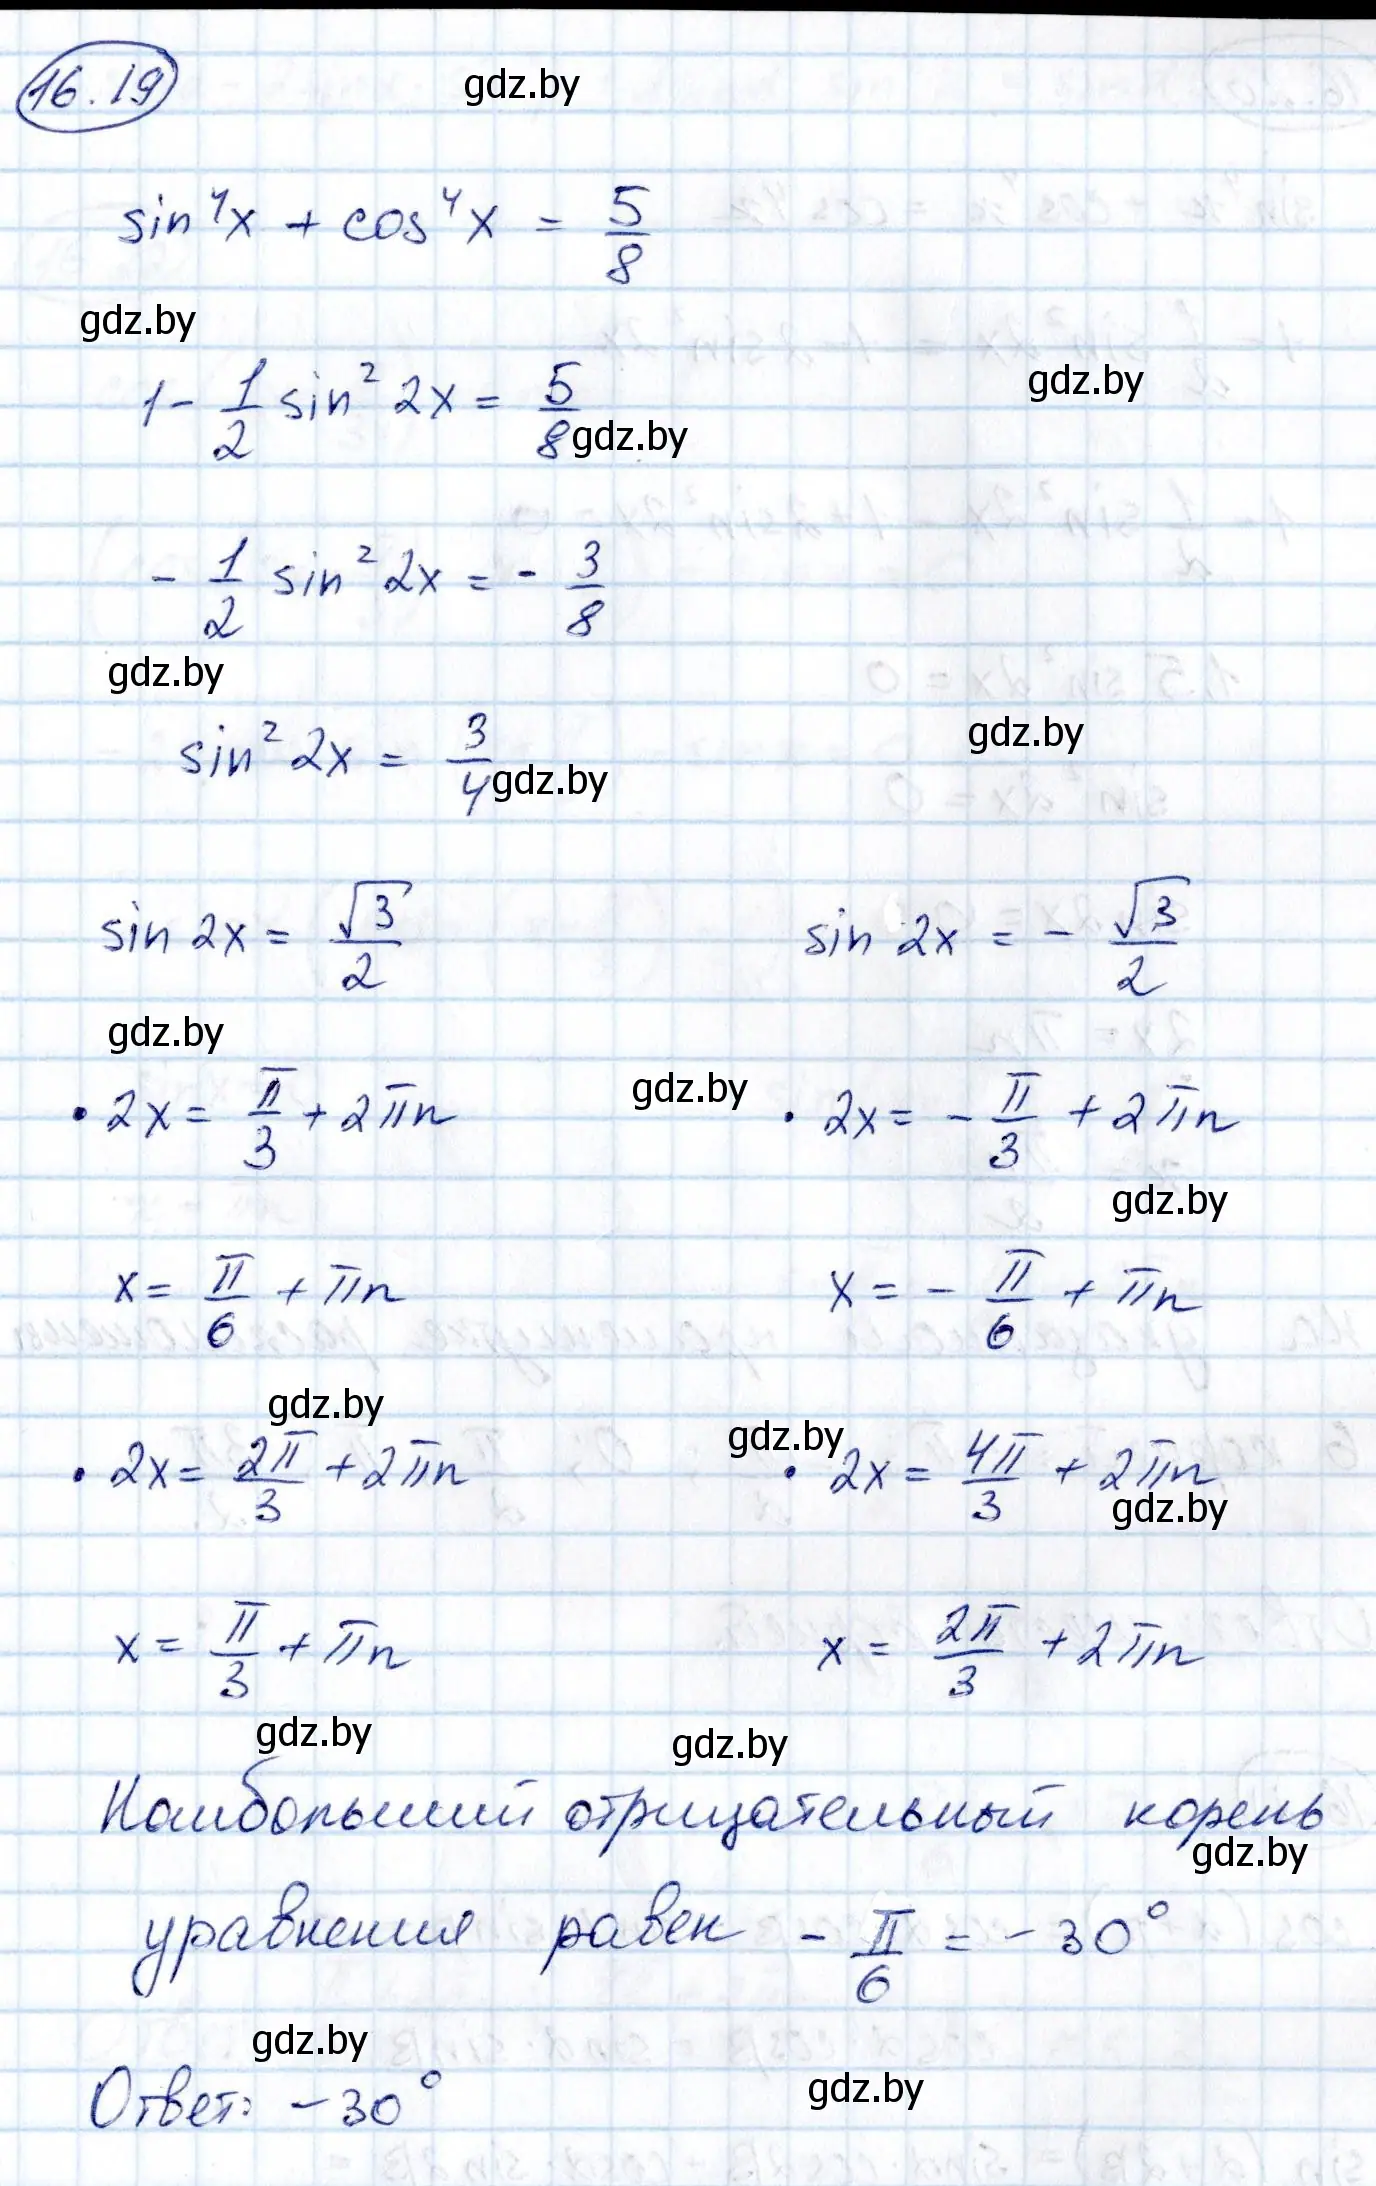 16.19
gdz.by
sin⁴x + cos⁴x = 5/8
gdz.by
gdz.by
1 - 1/2 sin² 2x = 5/8
gdz.by
- 1/2 sin² 2x = - 3/8
gdz.by
gdz.by
sin² 2x = 3/4
gdz.by
sin 2x = √3/2 sin 2x = - √3/2
gdz.by
gdz.by
• 2x = π/3 + 2πn • 2x = - π/3 + 2πn
gdz.by
x = π/6 + πn x = - π/6 + πn
gdz.by
gdz.by
• 2x = 2π/3 + 2πn • 2x = 4π/3 + 2πn
gdz.by
x = π/3 + πn x = 2π/3 + 2πn
gdz.by
gdz.by
Наибольший отрицательный корень
gdz.by
уравнения равен - π/6 = - 30°
gdz.by
gdz.by
Ответ: - 30°